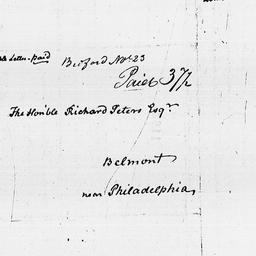 Letter paid Bedford Nov. 23
Paid 37½
The Honble Richard Peters Esqr.
Belmont
near Philadelphia,